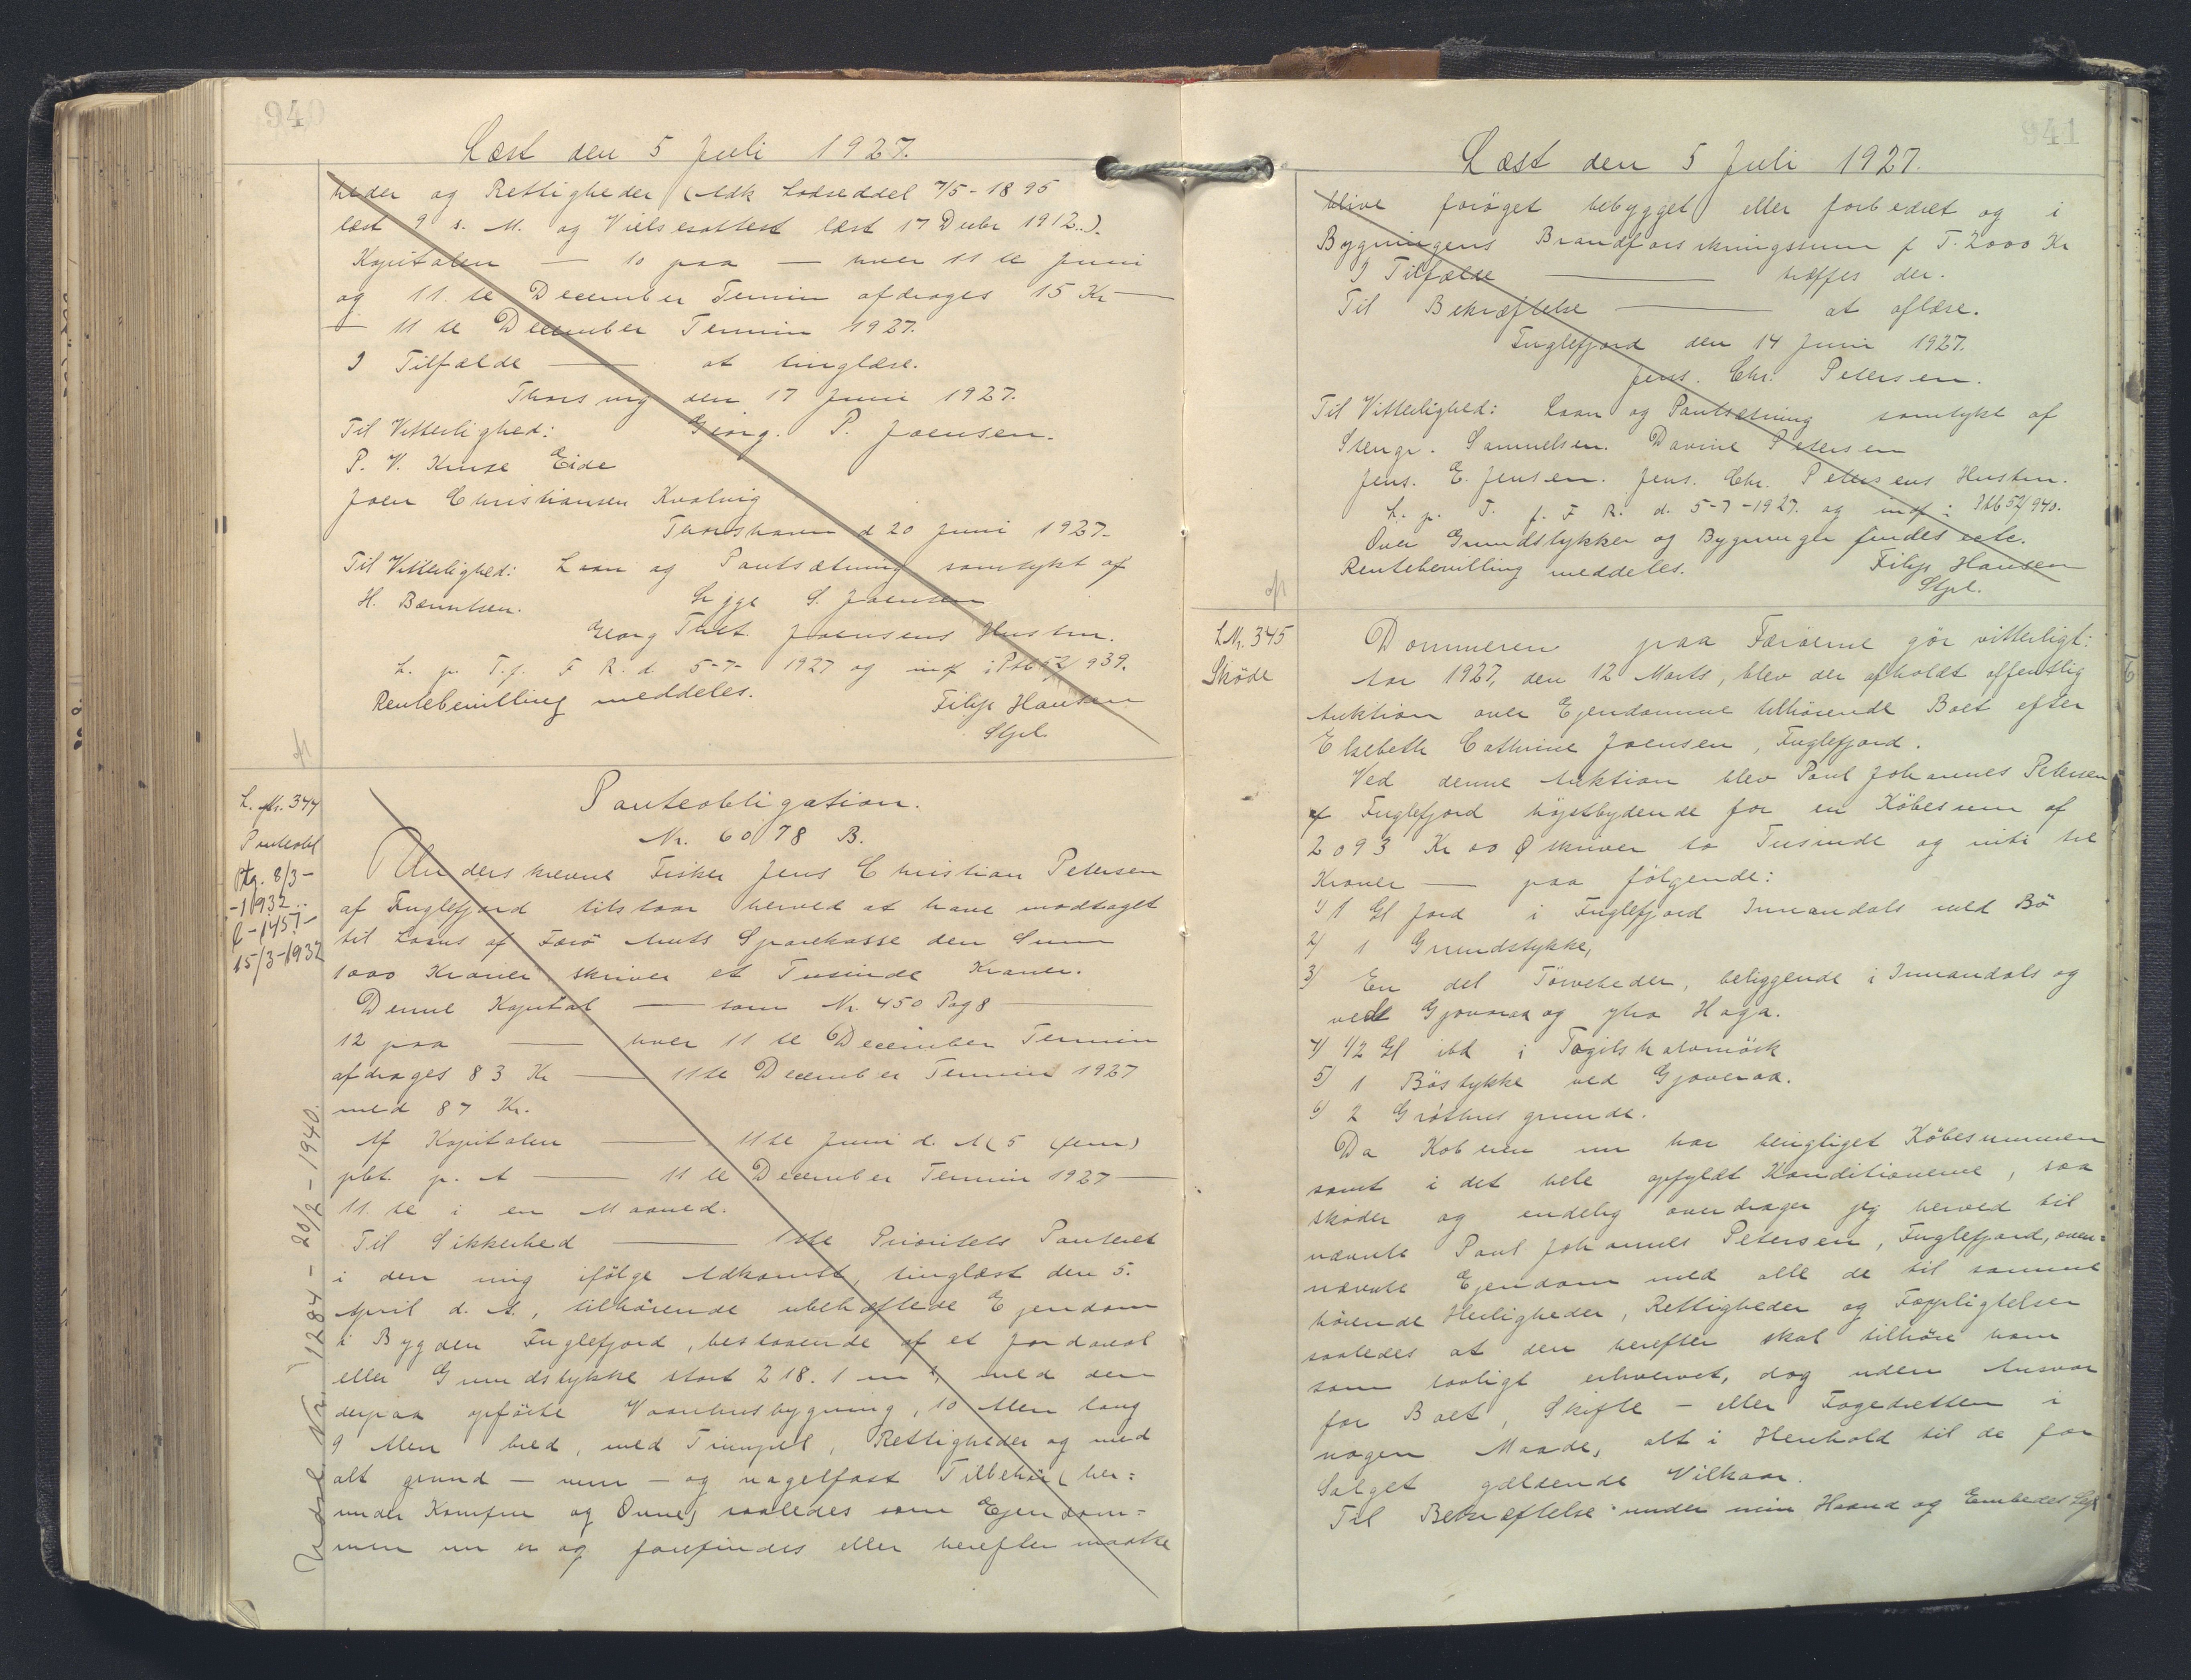 940
Læst den 5 Juli 1927.
heder og Rettigheder (Adk Lodseddel 7/5-1895
læst 9 s. M. og Vielsesattest læst 17 Decbr 1912..).
Kapitalen — 10 paa — hver 11 te Juni
og 11. te December Termin afdrages 15 Kr —
— 11 te December Termin 1927.
I Tilfælde — at tinglæse.
Thorsvig den 17 Juni 1927.
Til Vitterlighed: Georg. P. Joensen.
P. V. Kruse Eide
Joen Christiansen Kvalvig
Thorshavn d 20 Juni 1927.
Til Vitterlighed: Laan og Pantsætning samtykt af
H. Berntsen. S. Joensen
Georg Joensens Hustru.
L. p. T. f. F R. d 5-7-1927 og indf i Pbb 52/939.
Rentebevilling meddeles. Filip Hansen
Stpl.
L. Nr. 344
Panteobl
Ptg. 8/3-
-1932..
L-145?-
15/3-1932
Panteobligation.
Nr. 6078 B.
Underskrevne Fisker Jens Christian Petersen
af Fuglefjord tilstaar herved at have modtaget
til Laans af Færø Amts Sparekasse den Sum
1000 Kroner, skriver et Tusinde Kroner.
Denne Kapital — som Nr. 450 Pag 8 —
12 paa — hver 11 te December Termin
afdrages 83 Kr — 11te December Termin 1927
med 87 Kr.
Af Kapitalen — 11te Juni d. A (5 (fem)
pbt. p. A — 11 te December Termin 1927 —
11. te i en Maaned.
Til Sikkerhed — 1ste Prioritets Panteret
i den mig ifölge Adkomst, tinglæst den 5.
April d. A., tilhörende ubehæftede Ejendom
i Bygden Fuglefjord, bestaaende af et Jordareal
eller Grundstykke stort 218.1 m², med den
derpaa opförte Vaaanhusbygning, 10 Alen lang
9 Alen bred, med Tilbehör, Rettigheder og med
alt grund- mur- og nagelfast Tilbehör (her=
under Komfur og Ovne) saaledes som Ejendom=
men nu er og forefindes eller herefter maatte
Udsl. Nr. 1284 - 20/2 - 1940.
941
Læst den 5 Juli 1927.
blive forøget bebygget eller forbedret og i
Bygningens Brandforsikringssum p T. 2000 Kr
I Tilfælde — træffes der.
Til Bekræftelse — at aflæse.
Fuglefjord den 14 Juni 1927.
Jens. Chr. Petersen.
Til Vitterlighed: Laan og Pantsætning samtykt af
Samuelsen. Davine Petersen
Jens. E. Jensen. Jens. Chr. Petersens Hustru.
L. p. T. f. F R. d. 5-7-1927. og indf i Pbb 52/940.
Over Grundstykker og Bygninger findes ecte.
Rentebevilling meddeles. Filip Hansen
Stpl.
L Nr. 345
Sköde
Dommeren paa Færöerne gör vitterligt:
Aar 1927, den 12 Marts, blev der afholdt offentlig
Auktion over Ejendomme tilhörende Boet efter
Elsebeth Cathrine Joensen, Fuglefjord.
Ved denne Auktion blev Poul Johannes Petersen
af Fuglefjord höjstbydende for en Köbesum af
2093 Kr 00 Ø skriver to Tusinde og niti tre
Kroner — paa fölgende:
1) 1 Gl Jord i Fuglefjord Innandals med Bö
2) 1 Grundstykke,
3) En del Törveheder, beliggende i Innandals og
ved Gjovaraa og yha Haga.
4) 1/2 Gl ibd i
5) 1 Böstykke ved Gjoveraa.
6) 2 Gröthus grunde.
Da Köberen nu har berigtiget Köbesummen
samt i det hele opfyldt Konditionerne, saa
sköder og endelig overdrager jeg herved til
nævnte Poul Johannes Petersen, Fuglefjord, oven=
nævnte Ejendom med alle de til samme
hörende Herligheder, Rettigheder og Forpligtelser
saaledes at den herefter skal tilhöre ham
som lovligt erhvervet, dog uden Ansvar
for Boet, Skifte- eller Fogedretten i
nogen Maade, alt i Henhold til de for
Salget gældende Vilkaar.
Til Bekræftelse under min Haand og Embedets Segl